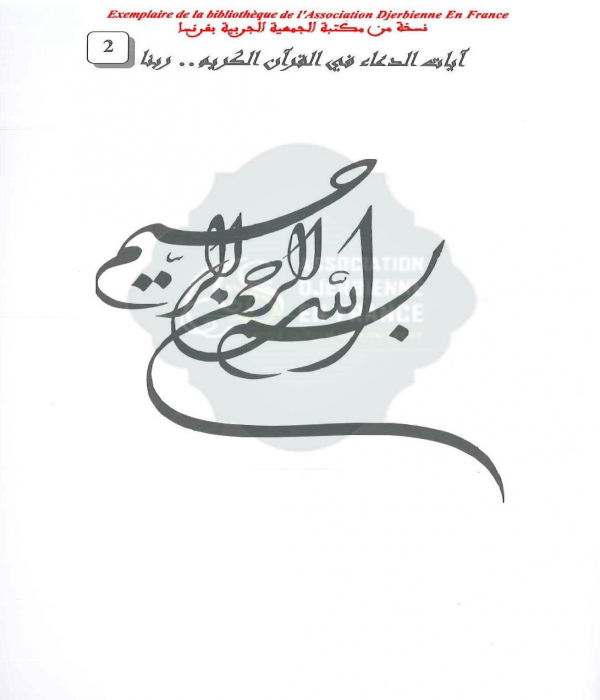 Exemplaire de la bibliothèque de l'Association Djerbienne En France
نسخة من مكتبة الجمعية الجربية بفرنسا
2
آيات الدعاء في القرآن الكريم .. ربنا
بسم الله الرحمن الرحيم
ASSOCIATION
DJERBIENNE
EN FRANCE